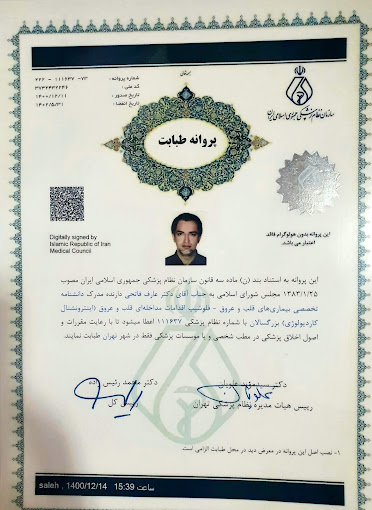 بسمه‌تعالی
شماره پروانه : ۷۳- ۱۱۱۶۳۷ - ۲۲۶
کد ملی :
تاریخ صدور : ۱۴۰۰/۱۲/۱۱
تاریخ انقضا :
سازمان نظام پزشکی جمهوری اسلامی ایران
پروانه طبابت
این پروانه بدون هولوگرام فاقد
اعتبار می باشد.
Digitally signed by
Islamic Republic of Iran
Medical Council
این پروانه به استناد بند (ن) ماده سه قانون سازمان نظام پزشکی جمهوری اسلامی ایران مصوب
۱۳۸۳/۱/۲۵ مجلس شورای اسلامی به جناب آقای دکتر عارف فاتحی دارنده مدرک دانشنامه
تخصصی بیماری‌های قلب و عروق - فلوشیپ اقدامات مداخله‌ای قلب و عروق (اینترونشنال
کاردیولوژی) بزرگسالان با شماره نظام پزشکی ۱۱۱۶۳۷ اعطا میشود تا با رعایت مقررات و
اصول اخلاق پزشکی در مطب شخصی و یا موسسات پزشکی فقط در شهر تهران طبابت نمایند.
دکتر سید
رییس هیات مدیره نظام پزشکی تهران
دکتر محمد رئیس زاده
رییس کل
۱- نصب اصل این پروانه در معرض دید در محل طبابت الزامی است
saleh , 1400/12/14 15:39 ساعت